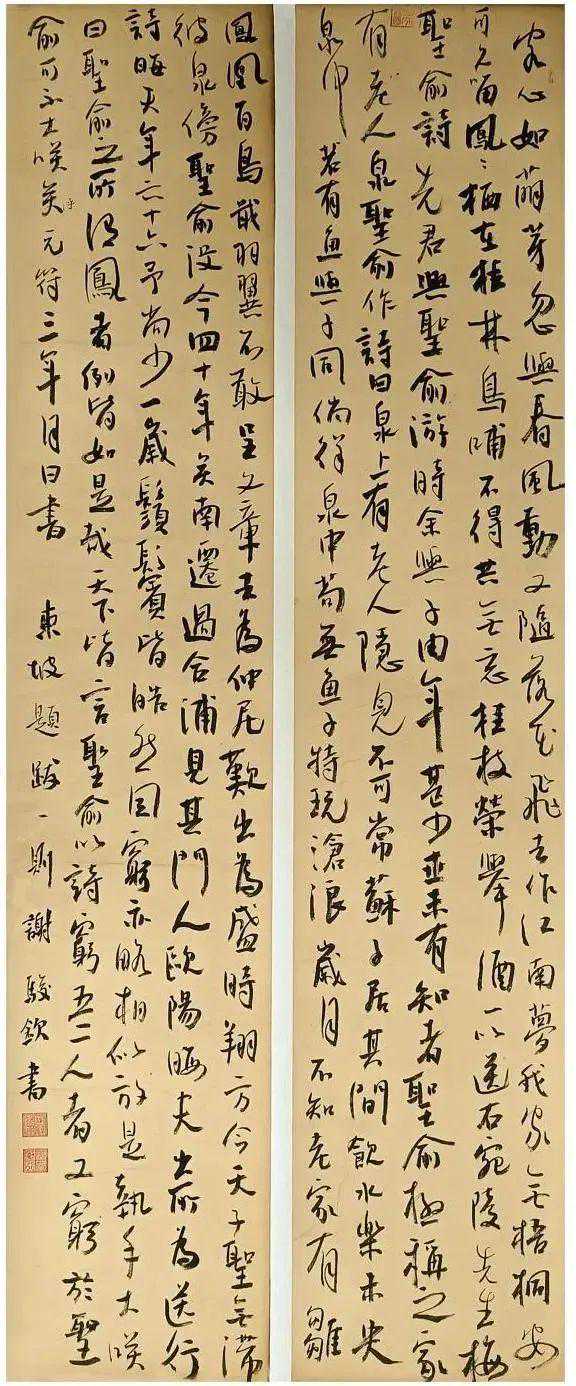 客心如萌芽忽與春風動又隨落花飛去作江南夢我家無梧桐安
可久留鳳〻栖在桂林鳥哺不得共無忘桂枝榮舉酒一以送右宛陵先生梅
聖俞詩先君與聖俞游時余與子由年甚少世未有知者聖俞極稱之家
有老人泉聖俞作詩曰泉上有老人隱見不可常蘇子居其間飲水樂未央
泉中若有魚與子同徜徉泉中苟無魚子特玩滄浪歲月不知老家有雛
鳳凰百鳥戢羽翼不敢呈文章去為仲尼歎出為盛時翔方今天子聖無滯
彼泉傍聖俞沒今四十年矣南遷過合浦見其門人歐陽晦夫出所為送行
詩晦夫年六十六予尚少一歲鬚鬢皆皓然固窮亦略相似於是執手大咲
曰聖俞之所謂鳳者例皆如是哉天下皆言聖俞以詩窮吾二人者又窮於聖
俞可不大咲矣乎元符三年月日書 東坡題跋一則 謝駿欽書